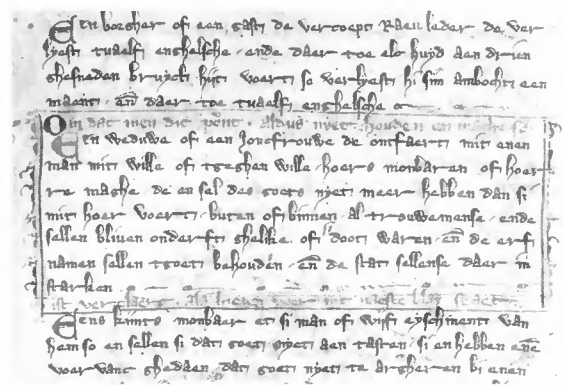 Een borgher of een gast de vercoept Raeu leder de ver
lyest tvaelf enghelsche · ende daer toe elc huyd aen drien
ghesneden bruyct hijt voert so verlyest hi sijn ambocht een
maent · en̄ daer toe tvaelf enghelsche
Om dat men dit pont · aldus nyet houden en mochte so
Een weduwe of een Joncfrouwe de ontfaert mit enen
man mit wille of tgeghen wille hoers monbaren of hoer
re maghe · de en sel des goets nyet meer hebben dan si
mit hoer voert · buten of binnen · al trouwemense · ende
sellen bliven onderft ghelike of doot waren · en̄ de erf
namen sellen tgoet behouden · en̄ de stat sellense daer in
starken
ist verclaert als hier
Eens kints monbaer et si man of wijf eyschiment van
hem so en sellen si dat goet nyet aen tasten · si en hebben ene
voer vanc ghedaen dat goet nyet te argheren bi enen